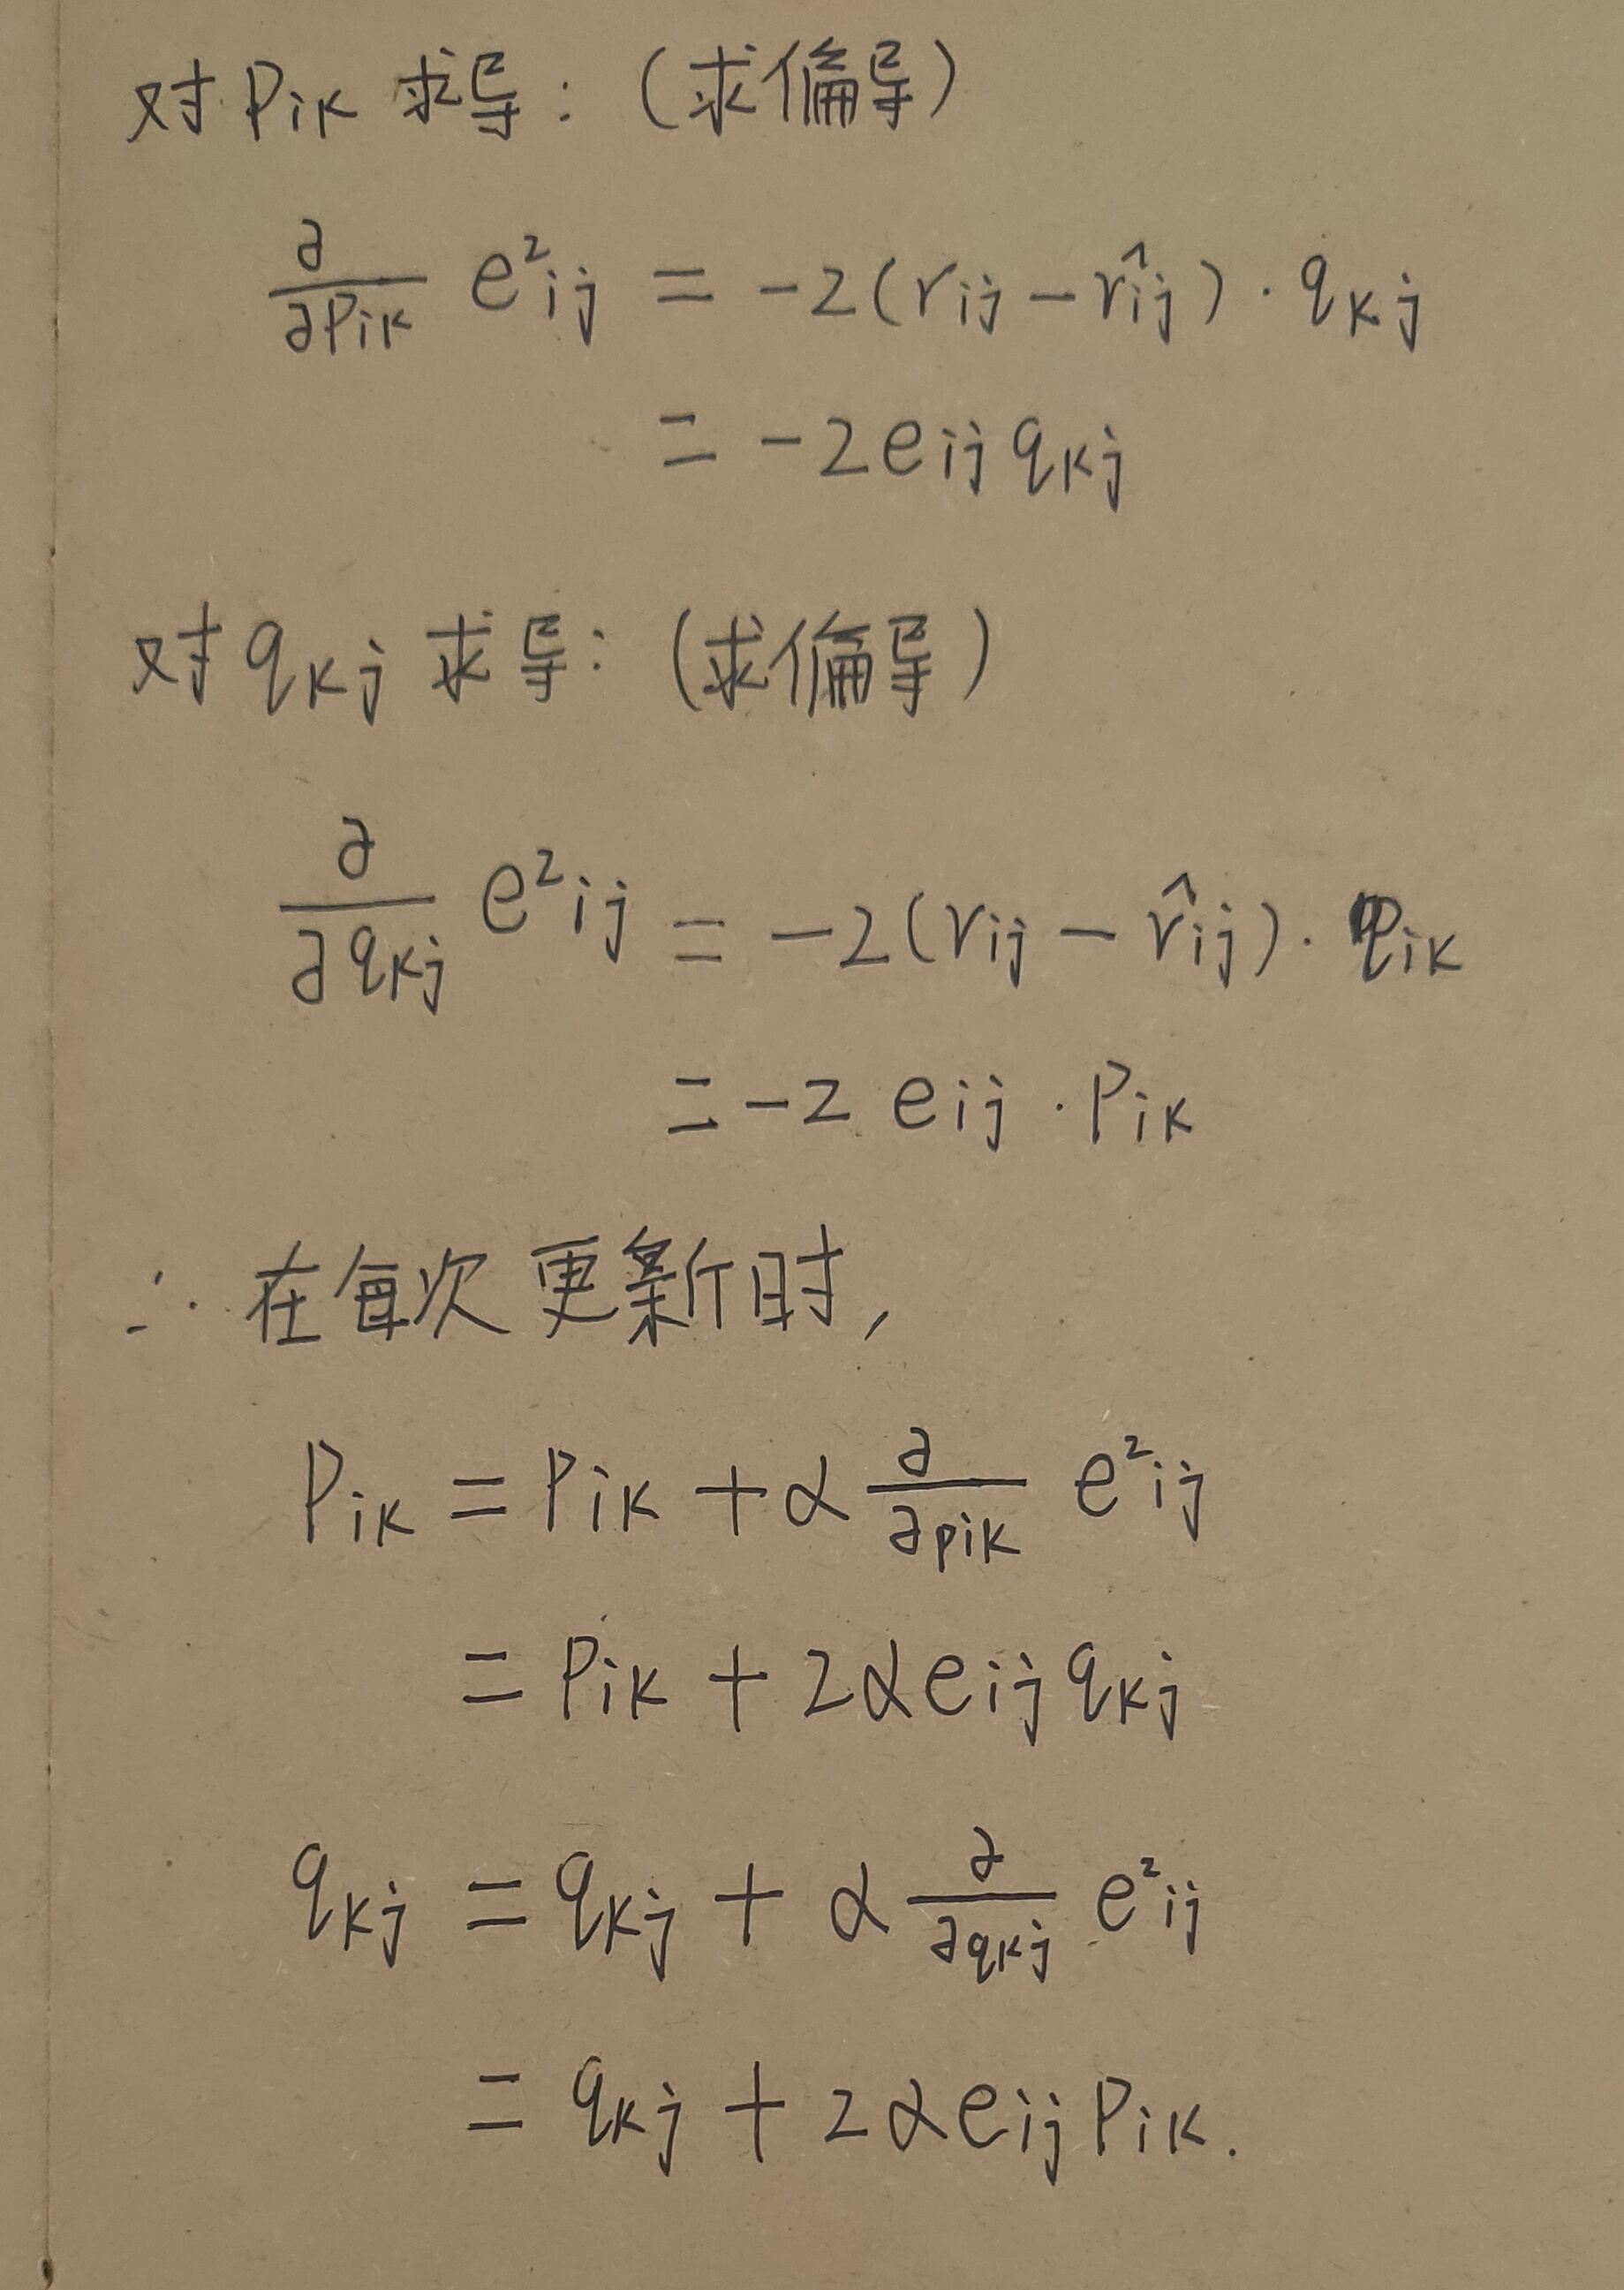 对 Pik 求导：(求偏导)
∂/∂Pik e²ij = -2(rij - r̂ij) · qkj
= -2eij qkj
对 qkj 求导：(求偏导)
∂/∂qkj e²ij = -2(rij - r̂ij) · Pik
= -2 eij · Pik
∴ 在每次更新时,
Pik = Pik + α ∂/∂pik e²ij
= Pik + 2αeij qkj
qkj = qkj + α ∂/∂qkj e²ij
= qkj + 2αeij Pik.